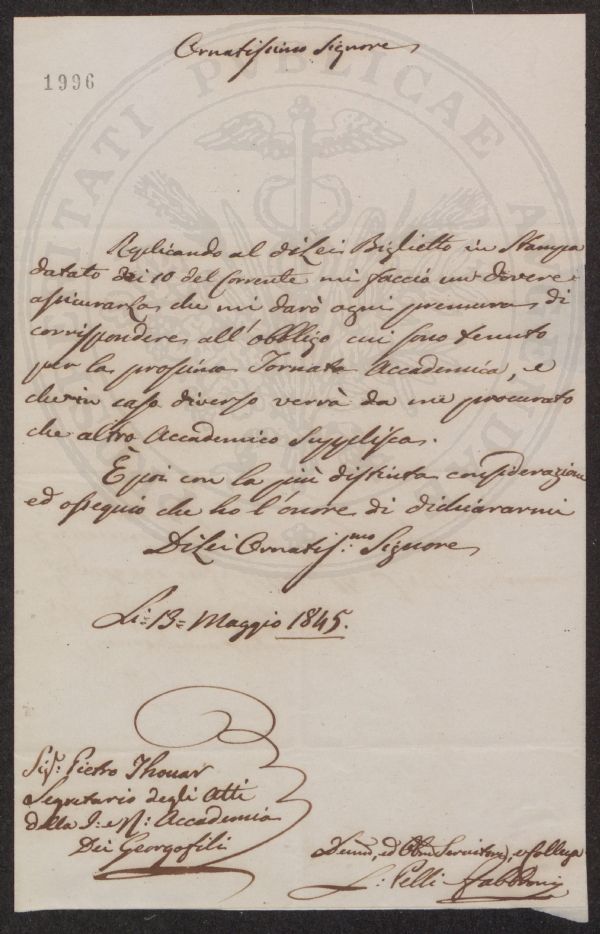 Ornatissimo Signore
1996
PROSPERITATI PUBLICAE AUGENDAE
Replicando al di Lei Biglietto in Stampa
datato dei 10 del Corrente mi faccio un dovere
assicurarla che mi darò ogni premura di
corrispondere all'obbligo cui sono tenuto
per la prossima Tornata Accademica, e
che in caso diverso verrà da me procurato
che altro Accademico Supplisca.
È poi con la più distinta considerazione
ed ossequio che ho l'onore di dichiararmi
Di Lei Ornatis:mo Signore
Li = 13 = Maggio 1845.
Sig.r Pietro Thouar
Segretario degli Atti
della I: e R: Accademia
Dei Georgofili
Devmo, ed Obbmo Servitore, e Collega
L: Pelli Fabbroni